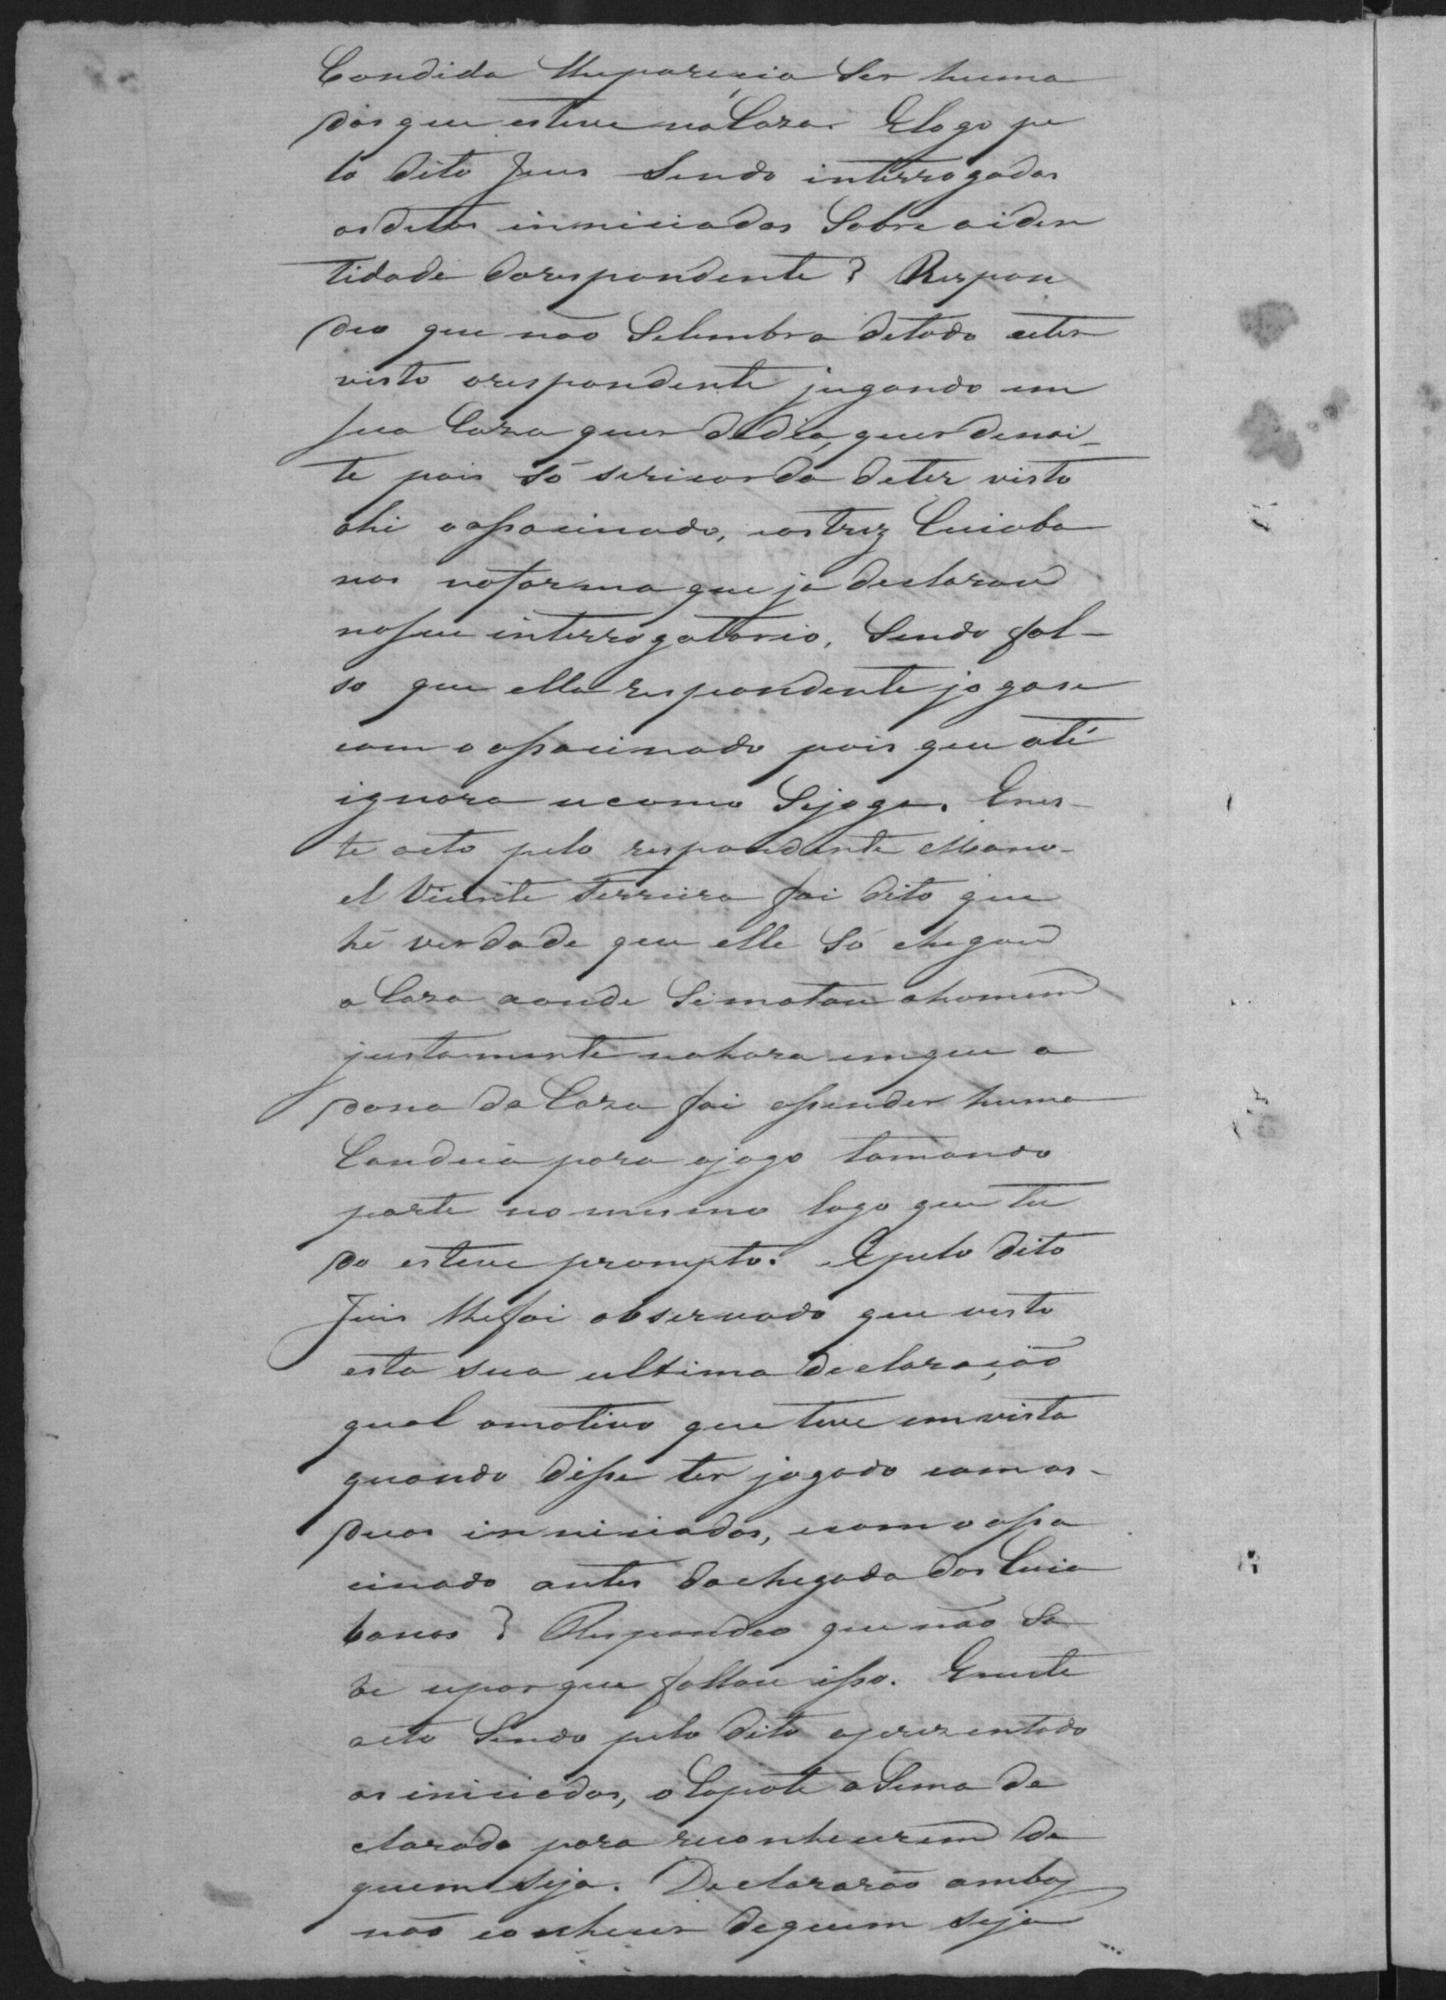 Candida lheparecia Ser huma
dos que esteve na Caza. Elogo pe
lo dito Juis Sendo interrogadas
as ditas inniciadas Sobre aiden
tidade dorespondente? Respon
deo que não Selembra detodo eter
visto orespondente jugando em
sua Caza quer dedia, quer denoi-
te pois só sericorda deter visto
ahi oassacinado, eostrez Cuiaba
nos naforma que ja declarou
noseu interrogatorio. Sendo fal-
so que elle respondente jogase
com oassacinado pois que até
ignora ecomo Sejoga. Enes-
te acto pelo respondente Mano-
el Vicente Ferreira foi dito que
hé verdade que elle Só chegou
a Caza aonde Simatou ohomem
justamente nahora emque a
dona da Caza foi assender huma
Candeia para ojogo tomando
parte nomesmo logo que tu
do esteve prompto. Epelo dito
Juis lhefoi observado que visto
esta sua ultima declaração
qual omotivo que teve emvista
quando disse ter jogado comas-
duas inniciadas, ecomoassa
cinado antes dachegada dos Cuia
banos? Respondeo que não Sa
be eporque fallou isso. Eneste
acto Sendo pelo dito aprezentado
as iniciadas, oCapote aSima de
clarado para reconhecerem de
quem Seja. Declararão ambas
não conhecer dequem Seja